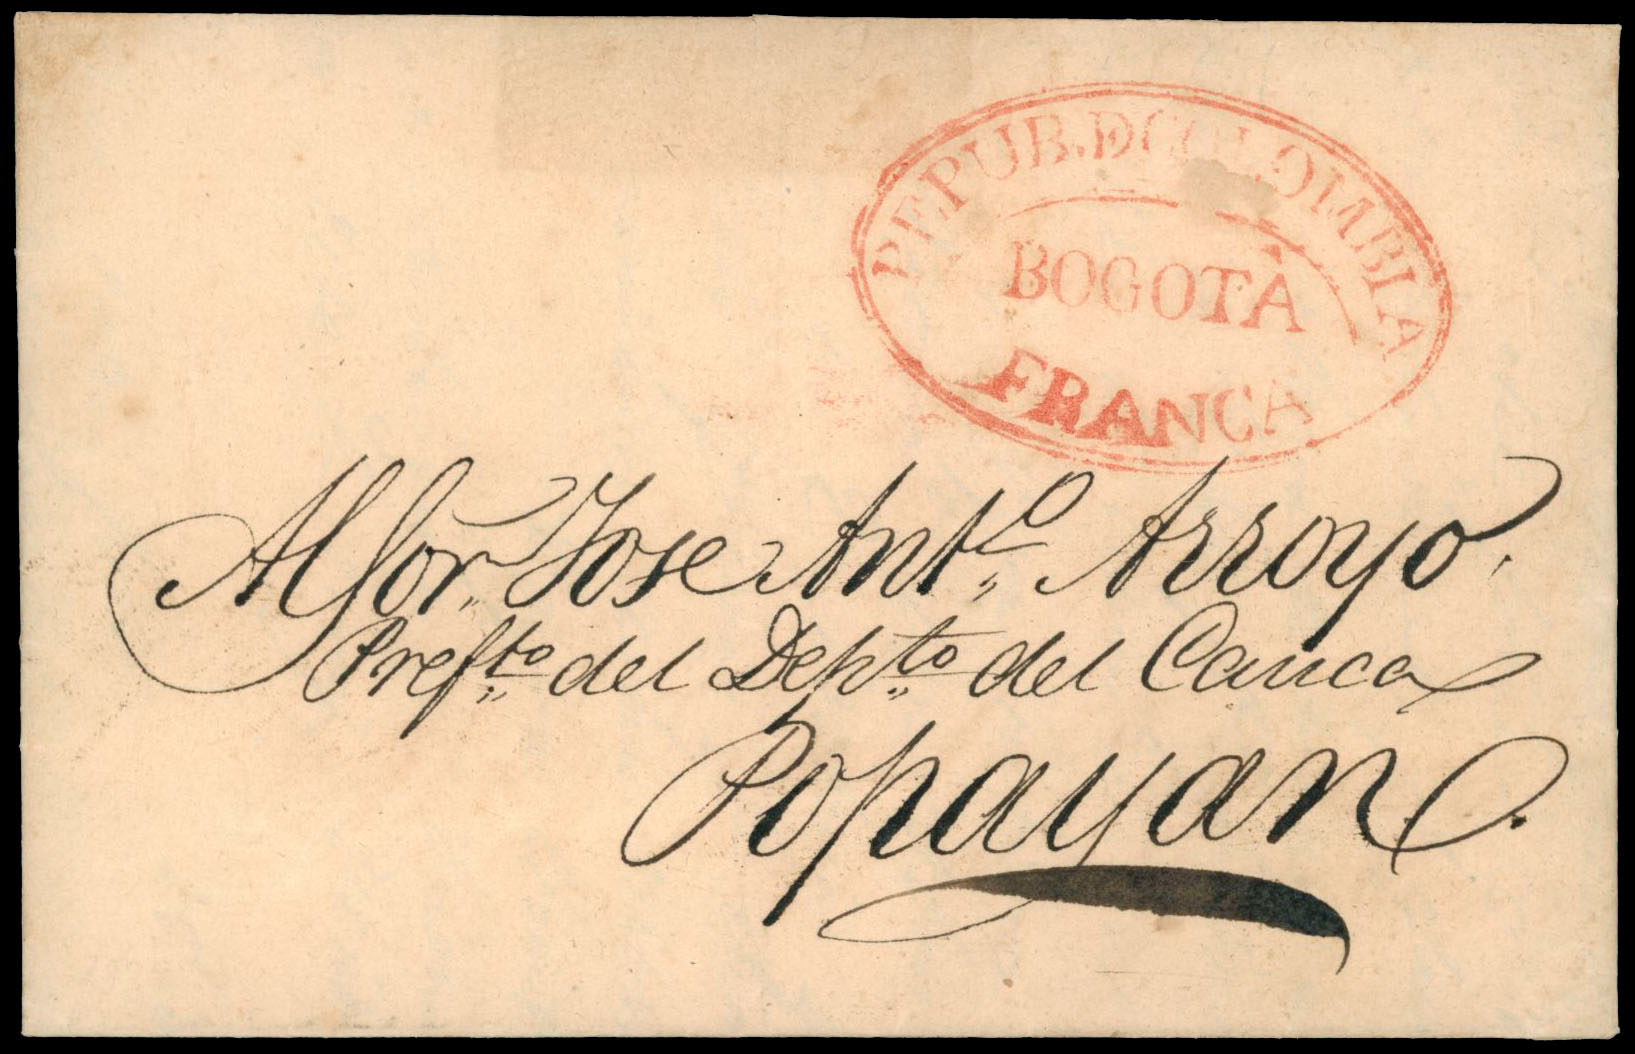 REPUB. DE COLOMBIA
BOGOTÀ
FRANCA
Al Sor. Jose Anto. Arroyo.
Prefto. del Depto. del Cauca
Popayan.